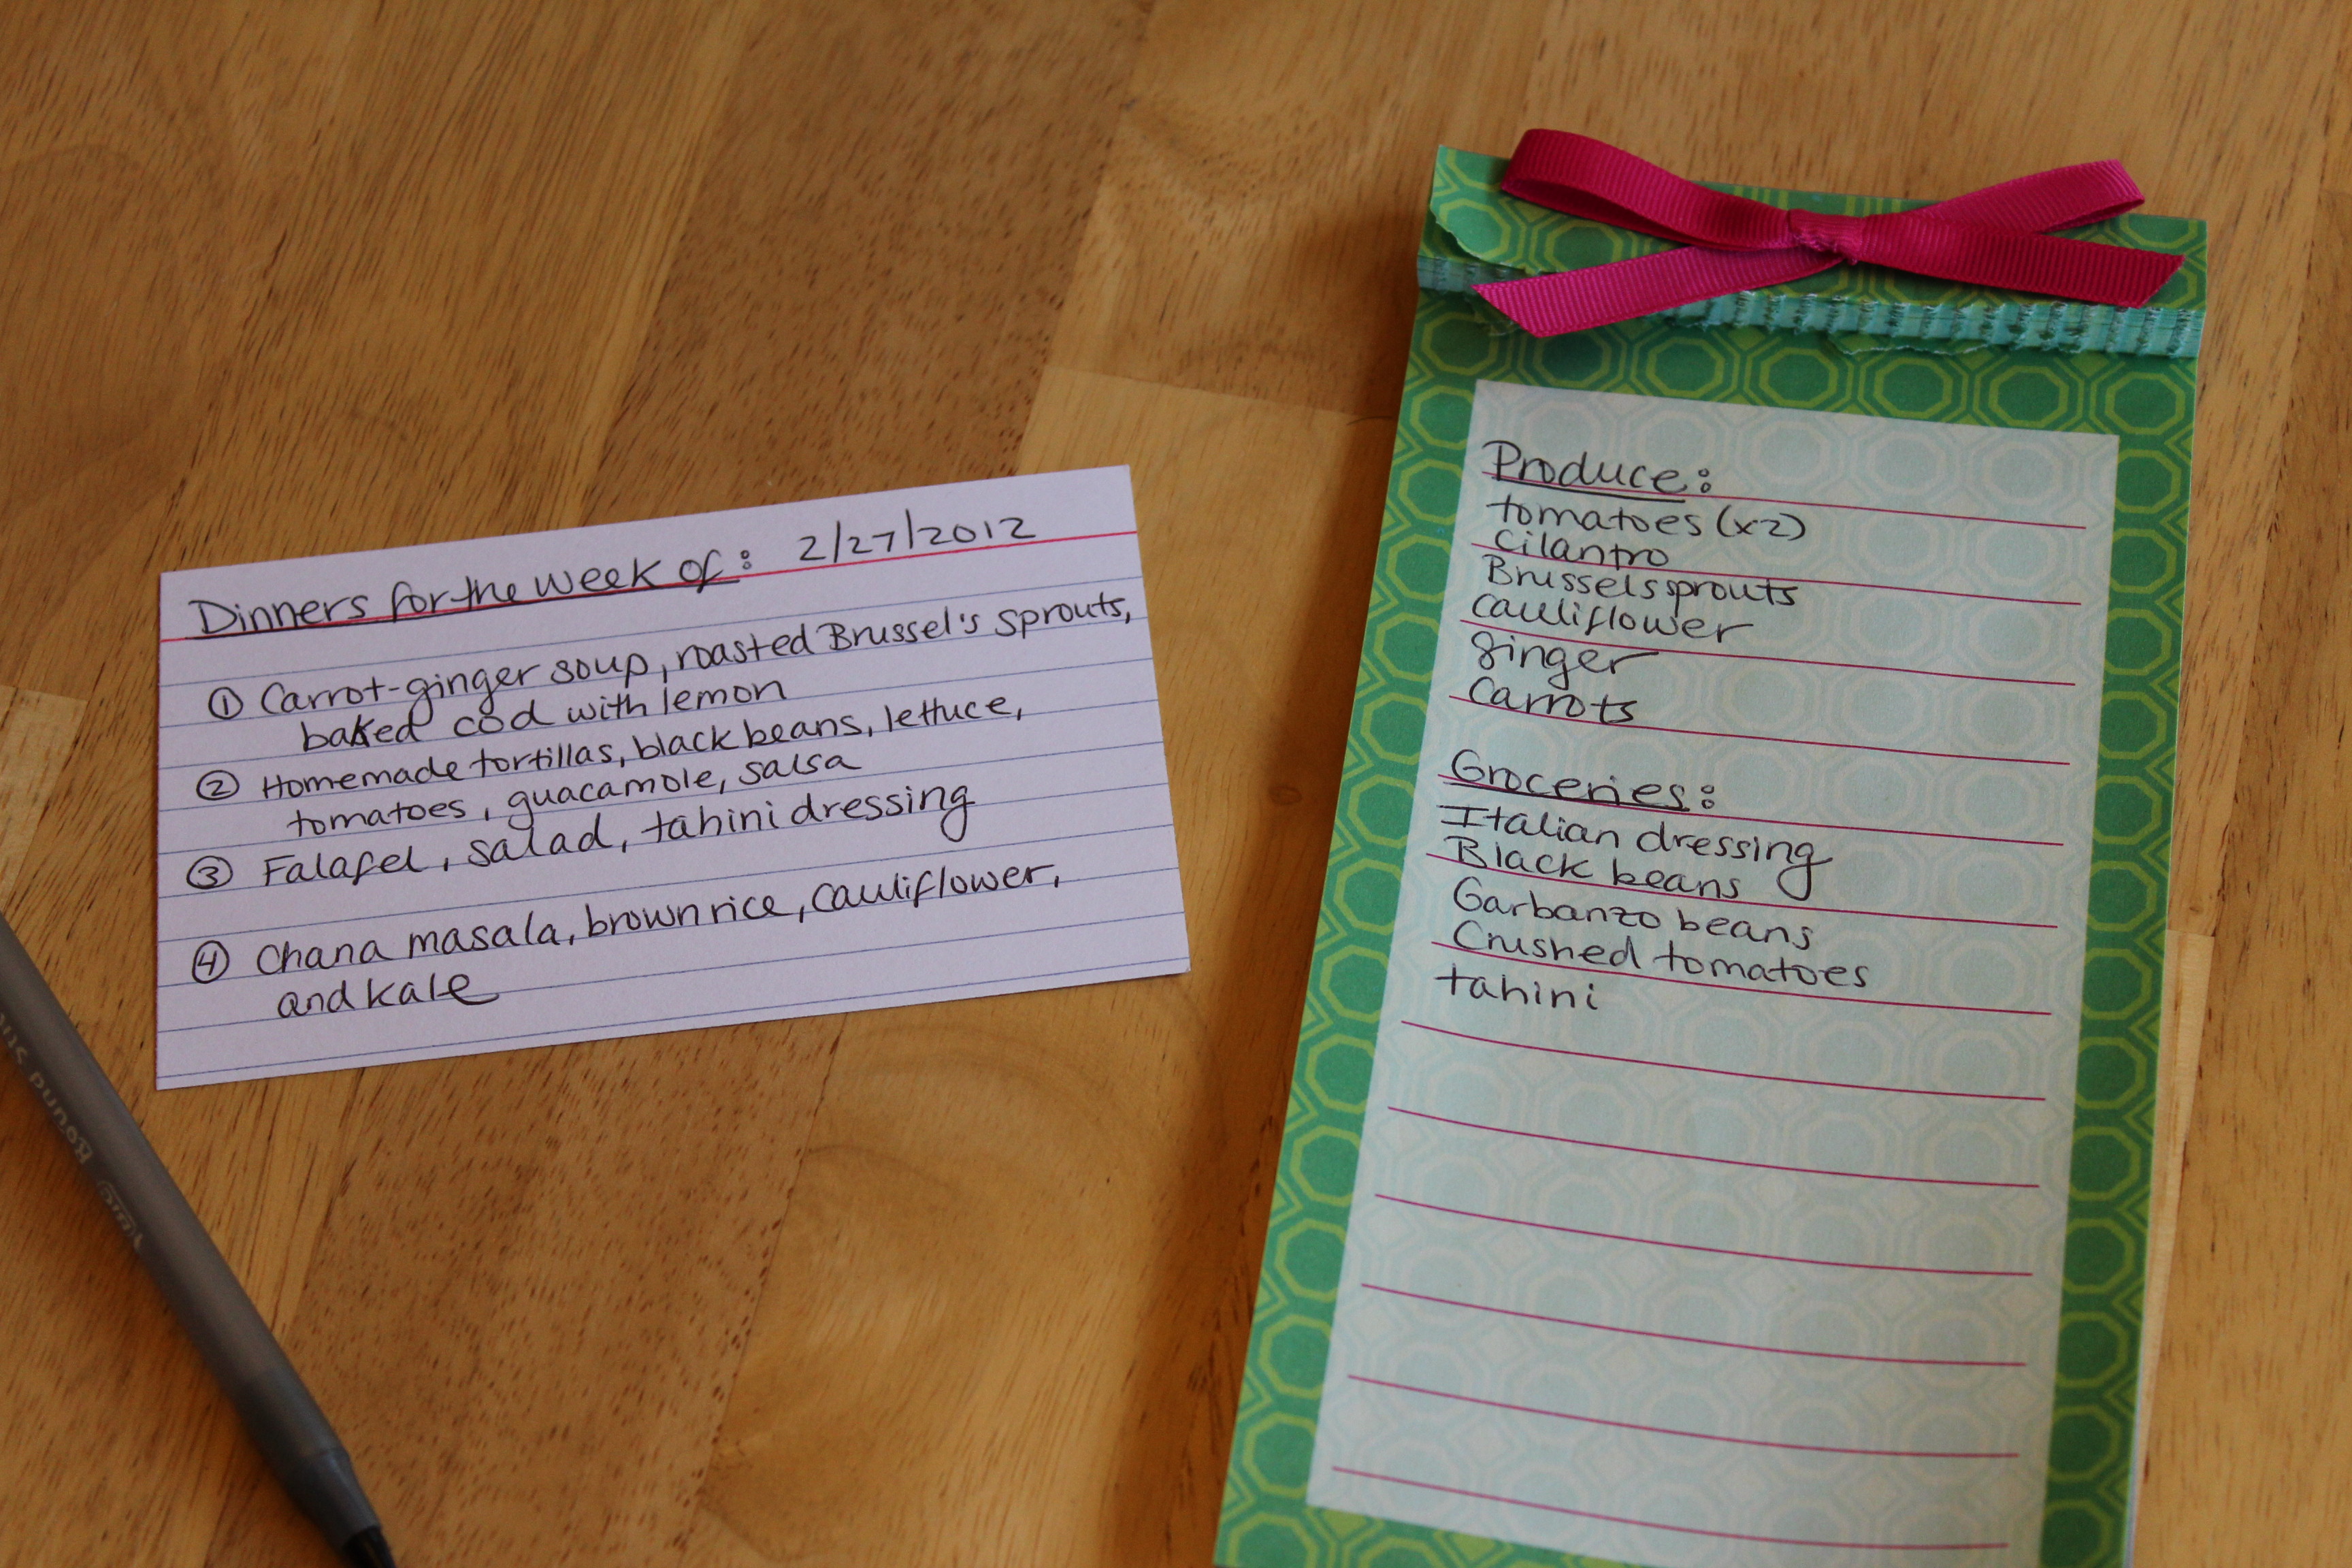 Dinners for the week of: 2/27/2012
① Carrot-ginger soup, roasted Brussel's sprouts,
baked cod with lemon
② Homemade tortillas, black beans, lettuce,
tomatoes, guacamole, salsa
③ Falafel, salad, tahini dressing
④ Chana masala, brown rice, cauliflower,
and kale
Produce:
tomatoes (x2)
cilantro
Brussels sprouts
cauliflower
ginger
carrots
Groceries:
Italian dressing
Black beans
Garbanzo beans
Crushed tomatoes
tahini
Round Stic